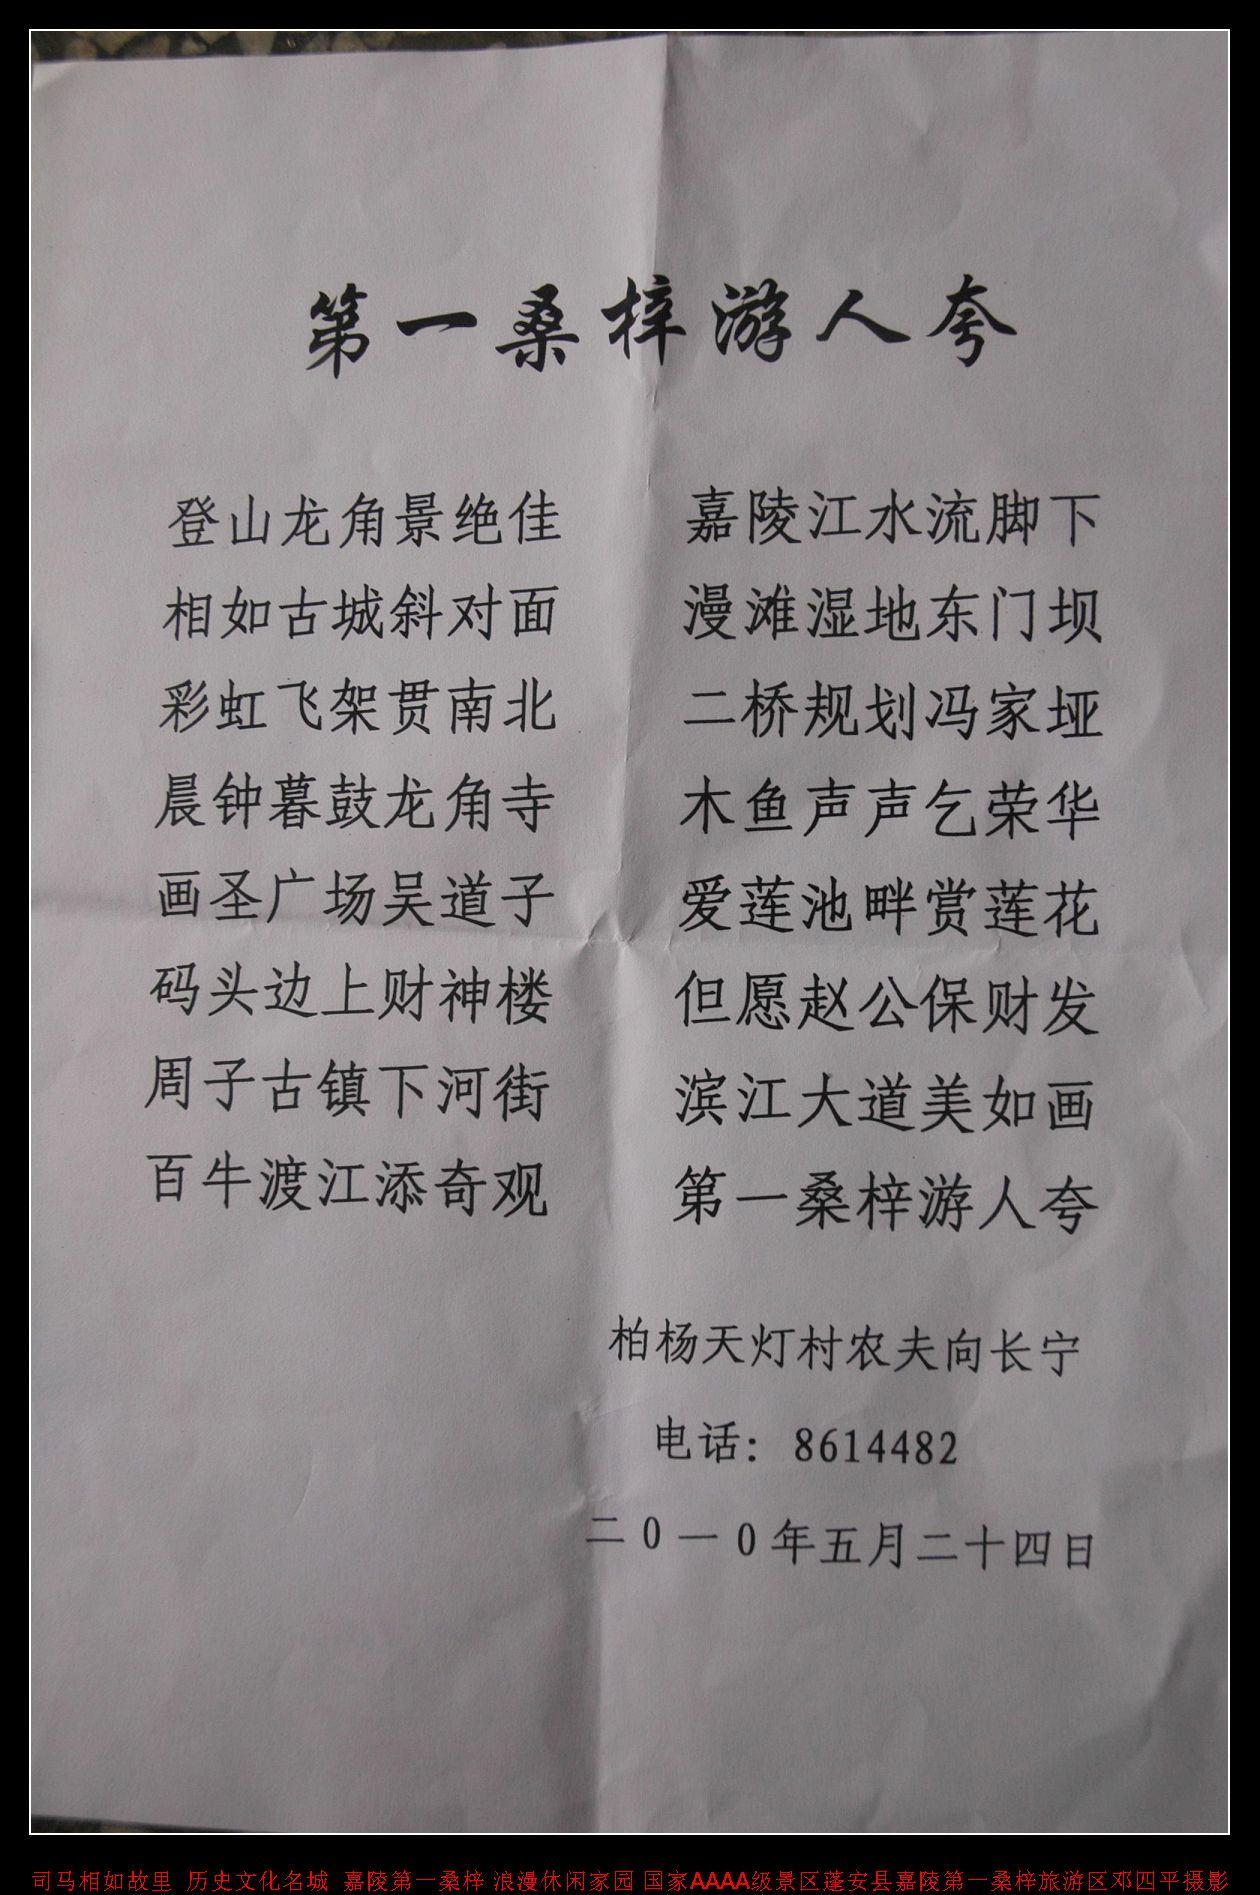 第一桑梓游人夸
登山龙角景绝佳 嘉陵江水流脚下
相如古城斜对面 漫滩湿地东门坝
彩虹飞架贯南北 二桥规划冯家垭
晨钟暮鼓龙角寺 木鱼声声乞荣华
画圣广场吴道子 爱莲池畔赏莲花
码头边上财神楼 但愿赵公保财发
周子古镇下河街 滨江大道美如画
百牛渡江添奇观 第一桑梓游人夸
柏杨天灯村农夫向长宁
电话：8614482
二0一0年五月二十四日
司马相如故里 历史文化名城 嘉陵第一桑梓 浪漫休闲家园 国家AAAA级景区蓬安县嘉陵第一桑梓旅游区邓四平摄影